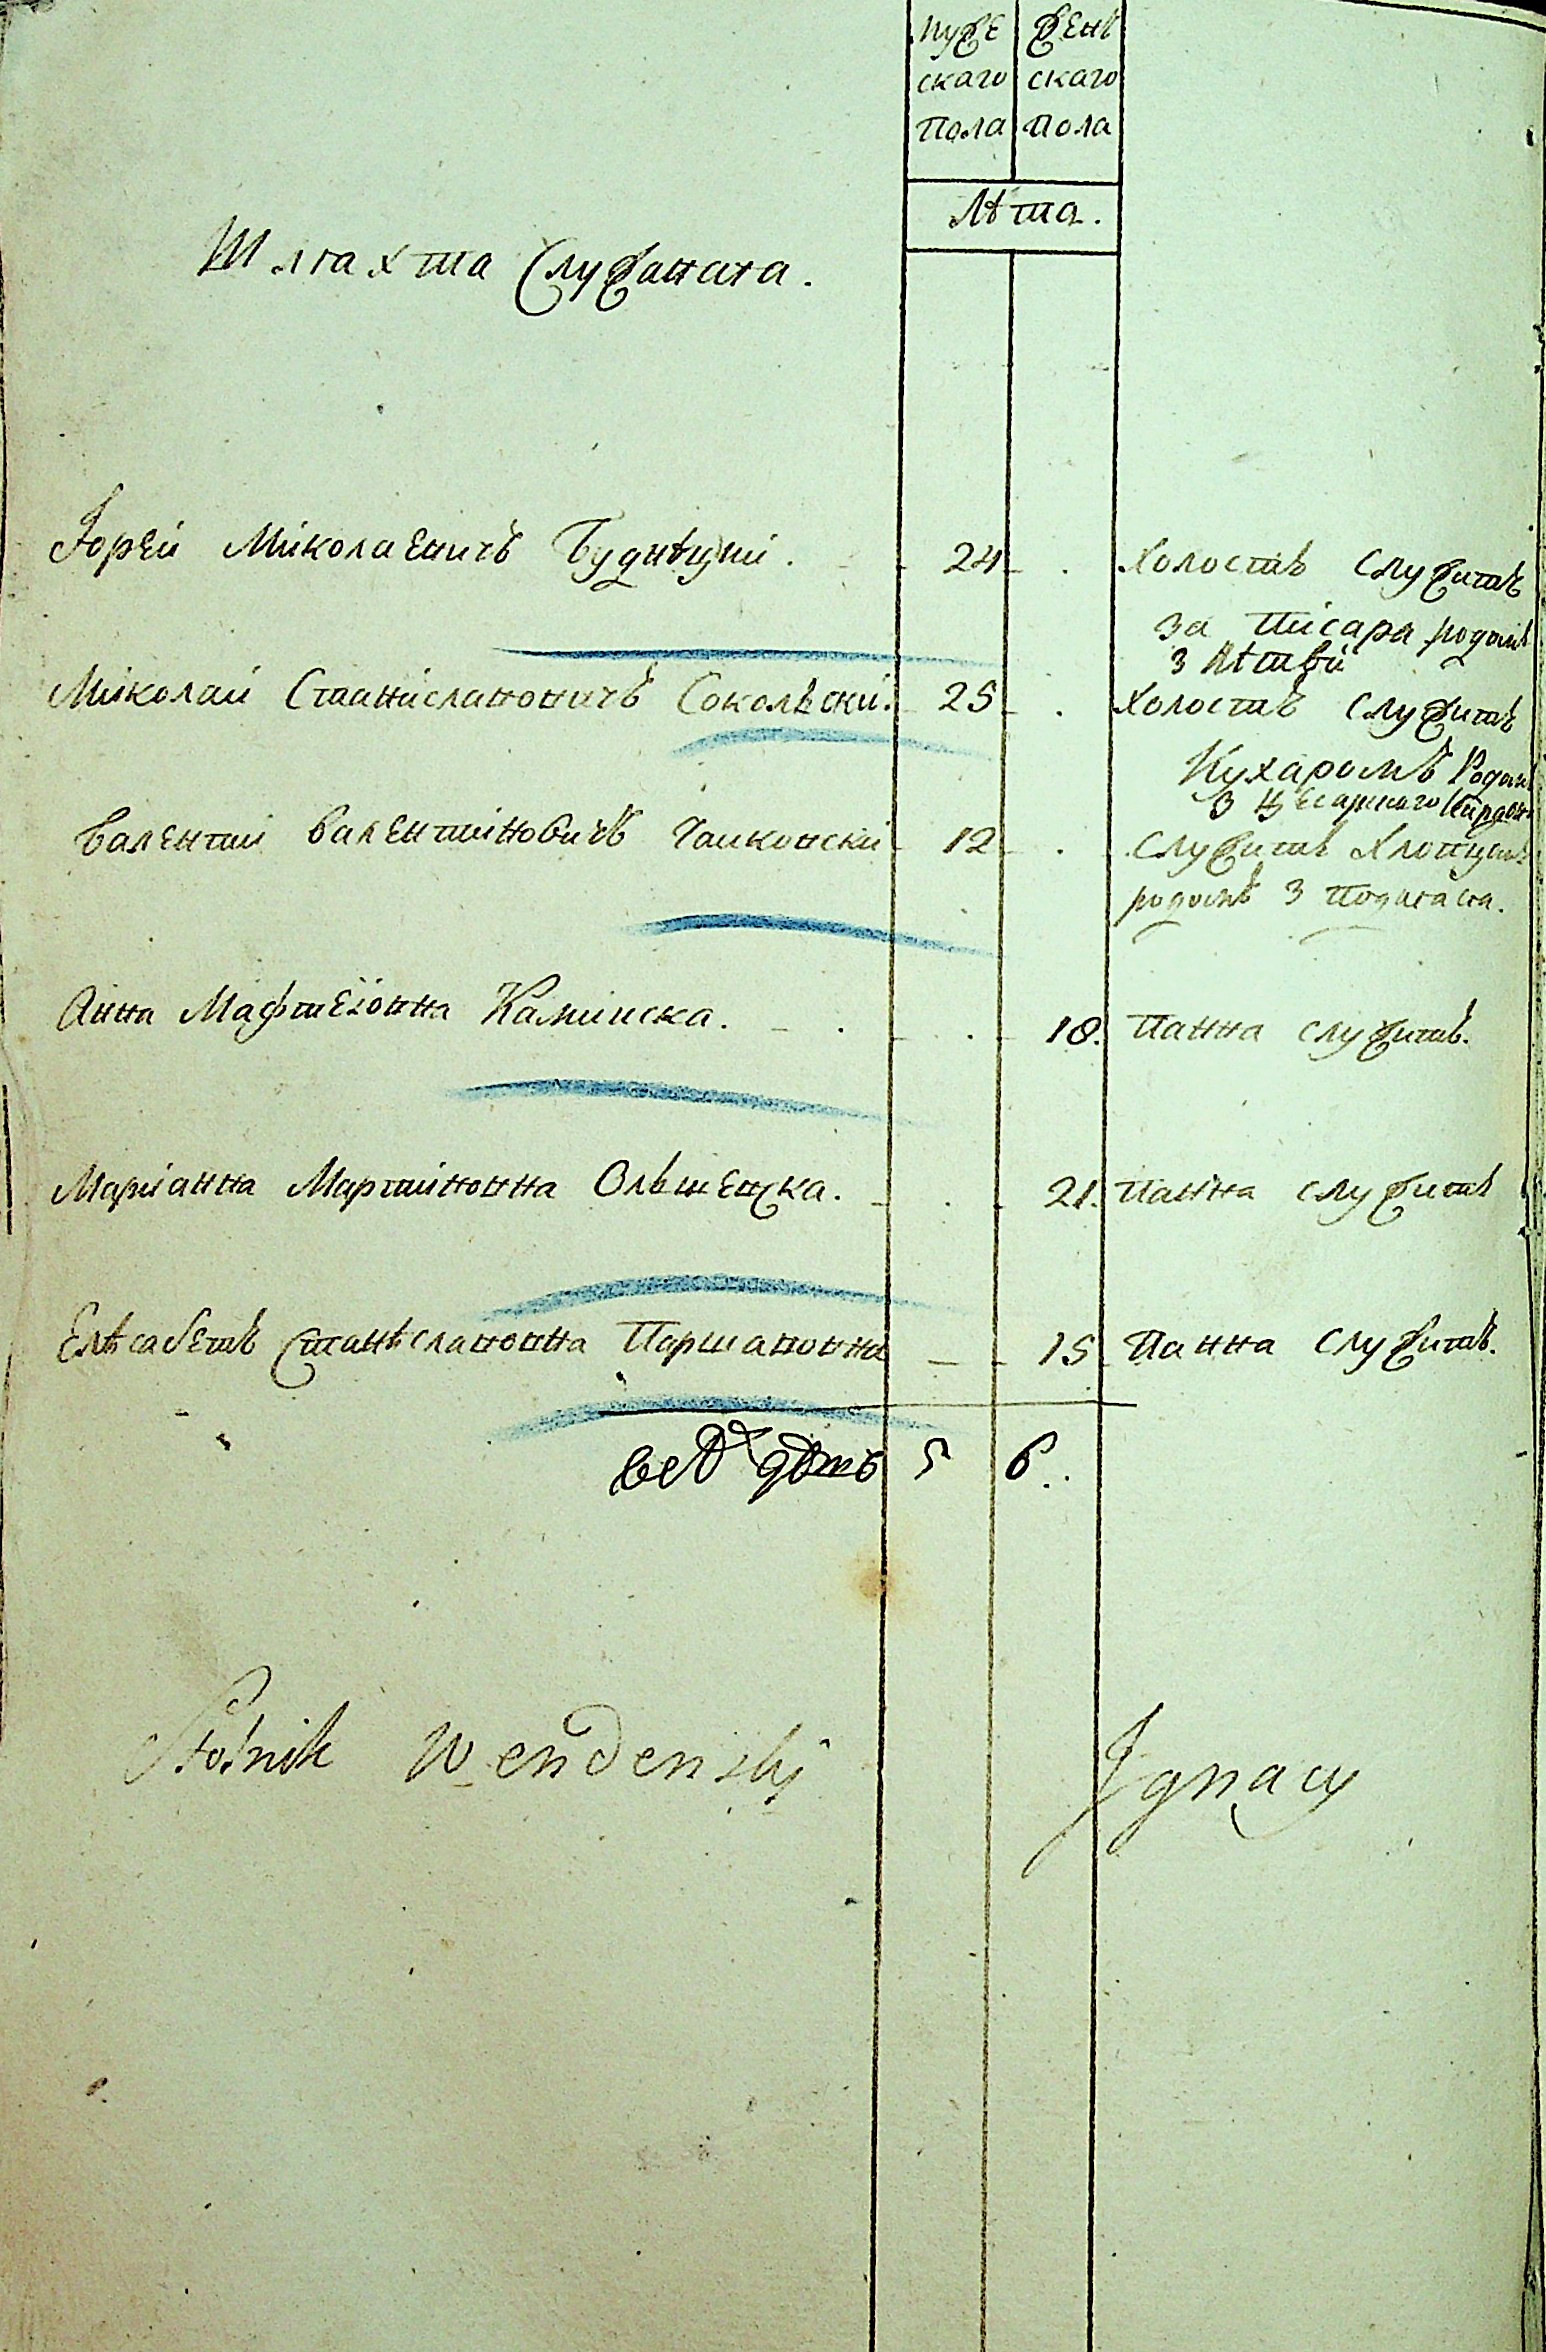 Мужескаго Пола | Женскаго Пола
Лѣта.
Шляхта Служащая.
Юрей Миколаевичъ Будиѣцкиі. 24 . Холостъ Служитъ
за писара родомъ
з Лѣтвы
Миколай Станіславовичъ Сокольски. 25 . Холостъ Служитъ
Кухаромъ Родомъ
з Цесарского
Валентий Валентиновичъ Чаиковскі 12 . Служитъ Хлопцемъ
родомъ з
Анна Мафтеіовна Камінска. 18. Панна служитъ.
Маріанна Мартиновна Ольшевска. 21. Панна служитъ
Елѣсабетъ Станѣславовна 15 Панна Служитъ.
5 6.
Stolnik Wendenskj Jgnacy